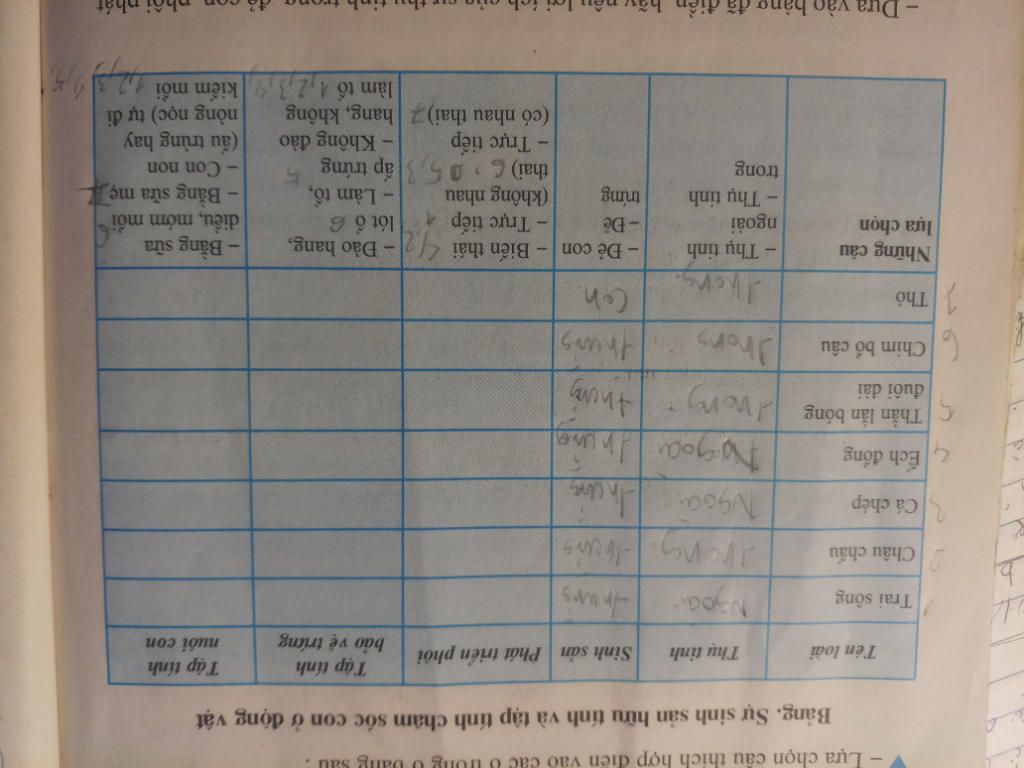 – Lựa chọn câu thích hợp điền vào các ô trống ở bảng sau :
Bảng. Sự sinh sản hữu tính và tập tính chăm sóc con ở động vật
Tên loài
Thụ tinh
Sinh sản
Phát triển phôi
Tập tính
bảo vệ trứng
Tập tính
nuôi con
1 Trai sông
Ngoài
trứng
2 Châu chấu
trong
trứng
3 Cá chép
Ngoài
trứng
4 Ếch đồng
Ngoài
trứng
5 Thằn lằn bóng
đuôi dài
trong
trứng
6 Chim bồ câu
trong
trứng
7 Thỏ
trong
con
Những câu
lựa chọn
– Thụ tinh
ngoài
– Thụ tinh
trong
– Đẻ con
– Đẻ
trứng
– Biến thái
– Trực tiếp
(không nhau
thai)
– Trực tiếp
(có nhau thai) 7
– Đào hang,
lót ổ 6
– Làm tổ,
ấp trứng 5
– Không đào
hang, không
làm tổ 1,2,3,4
– Bằng sữa
diều, mớm mồi 6
– Bằng sữa mẹ 7
– Con non
(ấu trùng hay
nòng nọc) tự đi
kiếm mồi 1,2,3,4,5,
– Dựa vào bảng đã điền, hãy nêu lợi ích của sự thụ tinh trong, đẻ con, phôi phát